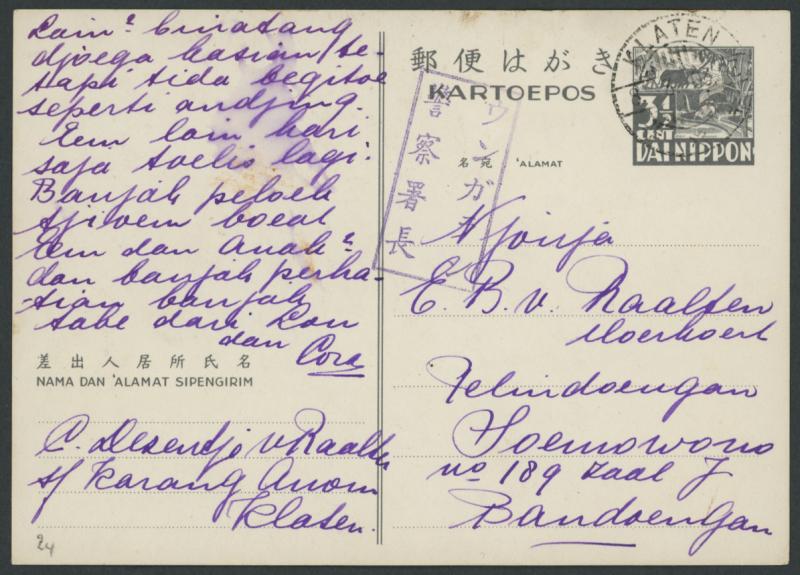 Lain² binatang
djoega kasian, te-
tapi tida begitoe
seperti andjing.
Eem lain hari
saja toelis lagi.
Banjak peloek
tjioem boeat
Eem dan Anak²
dan banjak perha-
tian banjak
tabe dari Kon
dan Cora
差出人居所氏名
NAMA DAN ʼALAMAT SIPENGIRIM
C. Desentje v Raalten
s/f Karang Anom
Klaten.
24
郵便はがき
KARTOEPOS
KLATEN
3½
CENT
DAI NIPPON
ウンガ
警察署長
名宛 ʼALAMAT
Njonja
E. B. v. Raalten
Pelindoengan
Soemowono
no 189 zaal J
Bandoengan